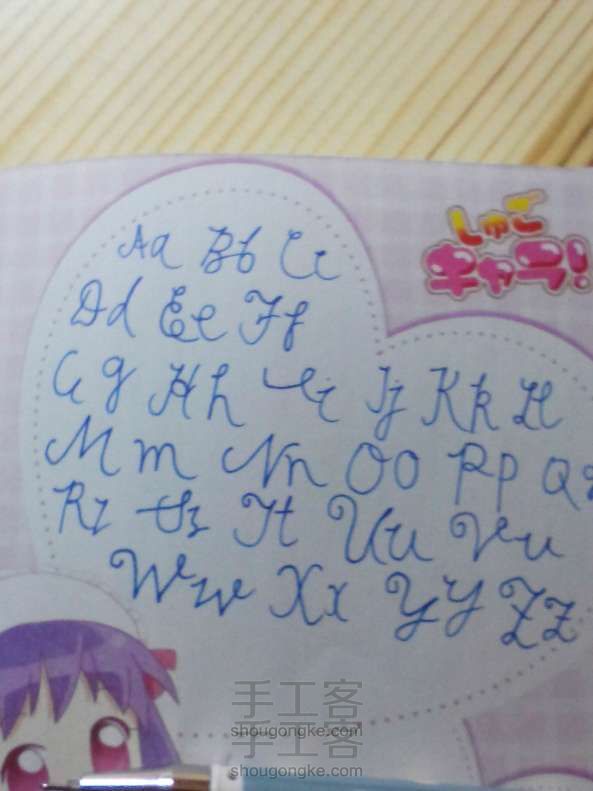 しゅご
キャラ!
Aa Bb Cc
Dd Ee Ff
Gg Hh Ii Jj Kk Ll
Mm Nn Oo Pp Qq
Rr Ss Tt Uu Vv
Ww Xx Yy Zz
手工客
shougongke.com
手工客
shougongke.com